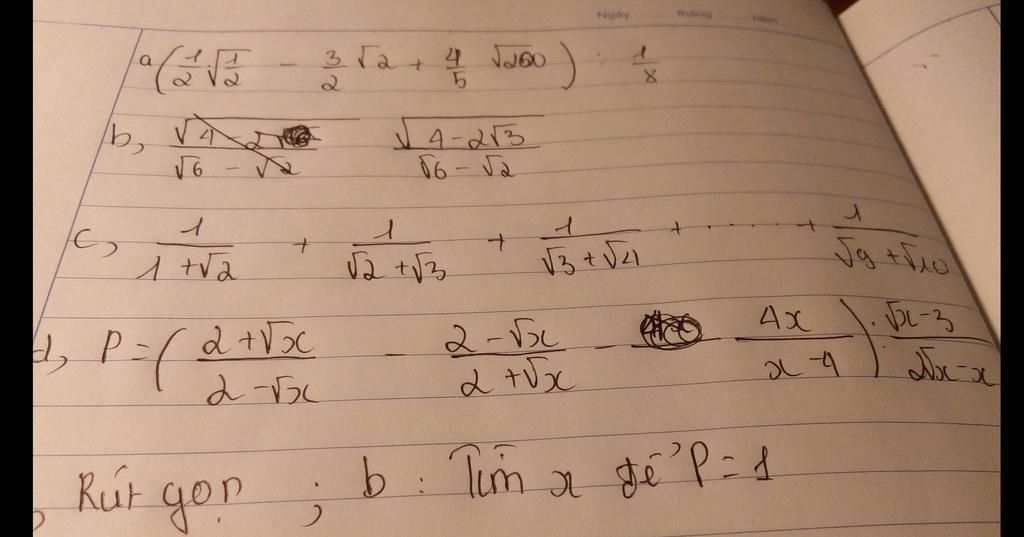 Ngày tháng năm
a (1/2 √(1/2) - 3/2 √2 + 4/5 √200) : 1/8
b, √(4-2√3)/(√6-√2)
c, 1/(1+√2) + 1/(√2+√3) + 1/(√3+√4) + ........ + 1/(√9+√10)
d, P = ((2+√x)/(2-√x) - (2-√x)/(2+√x) - 4x/(x-4)) : (√x-3)/(2√x-x)
Rút gọn ; b : Tìm x để P = 1